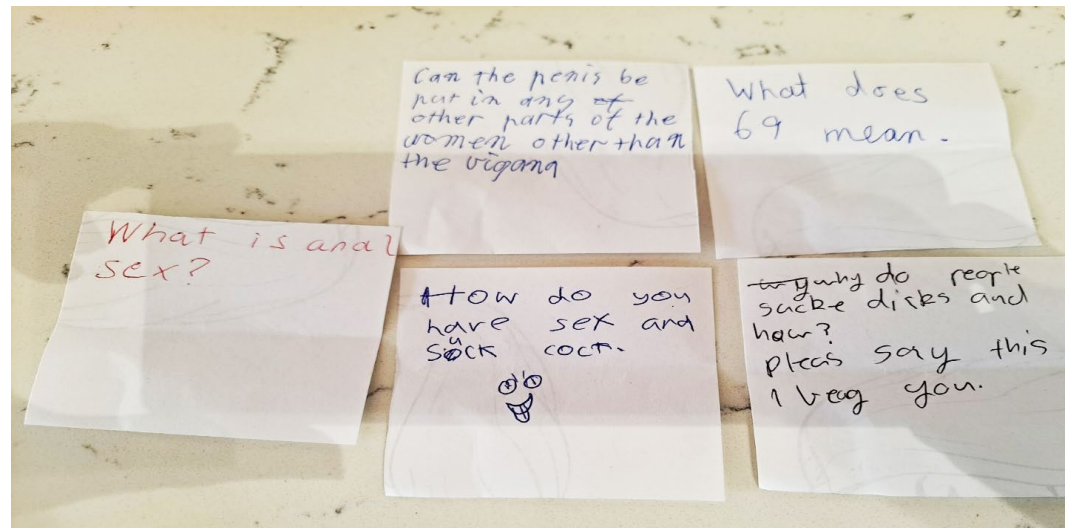 Can the penis be
put in any of
other parts of the
women other than
the vigana
What does
69 mean.
What is anal
sex?
How do you
have sex and
suck cock.
why do people
sucke dicks and
how?
pleas say this
I beag you.